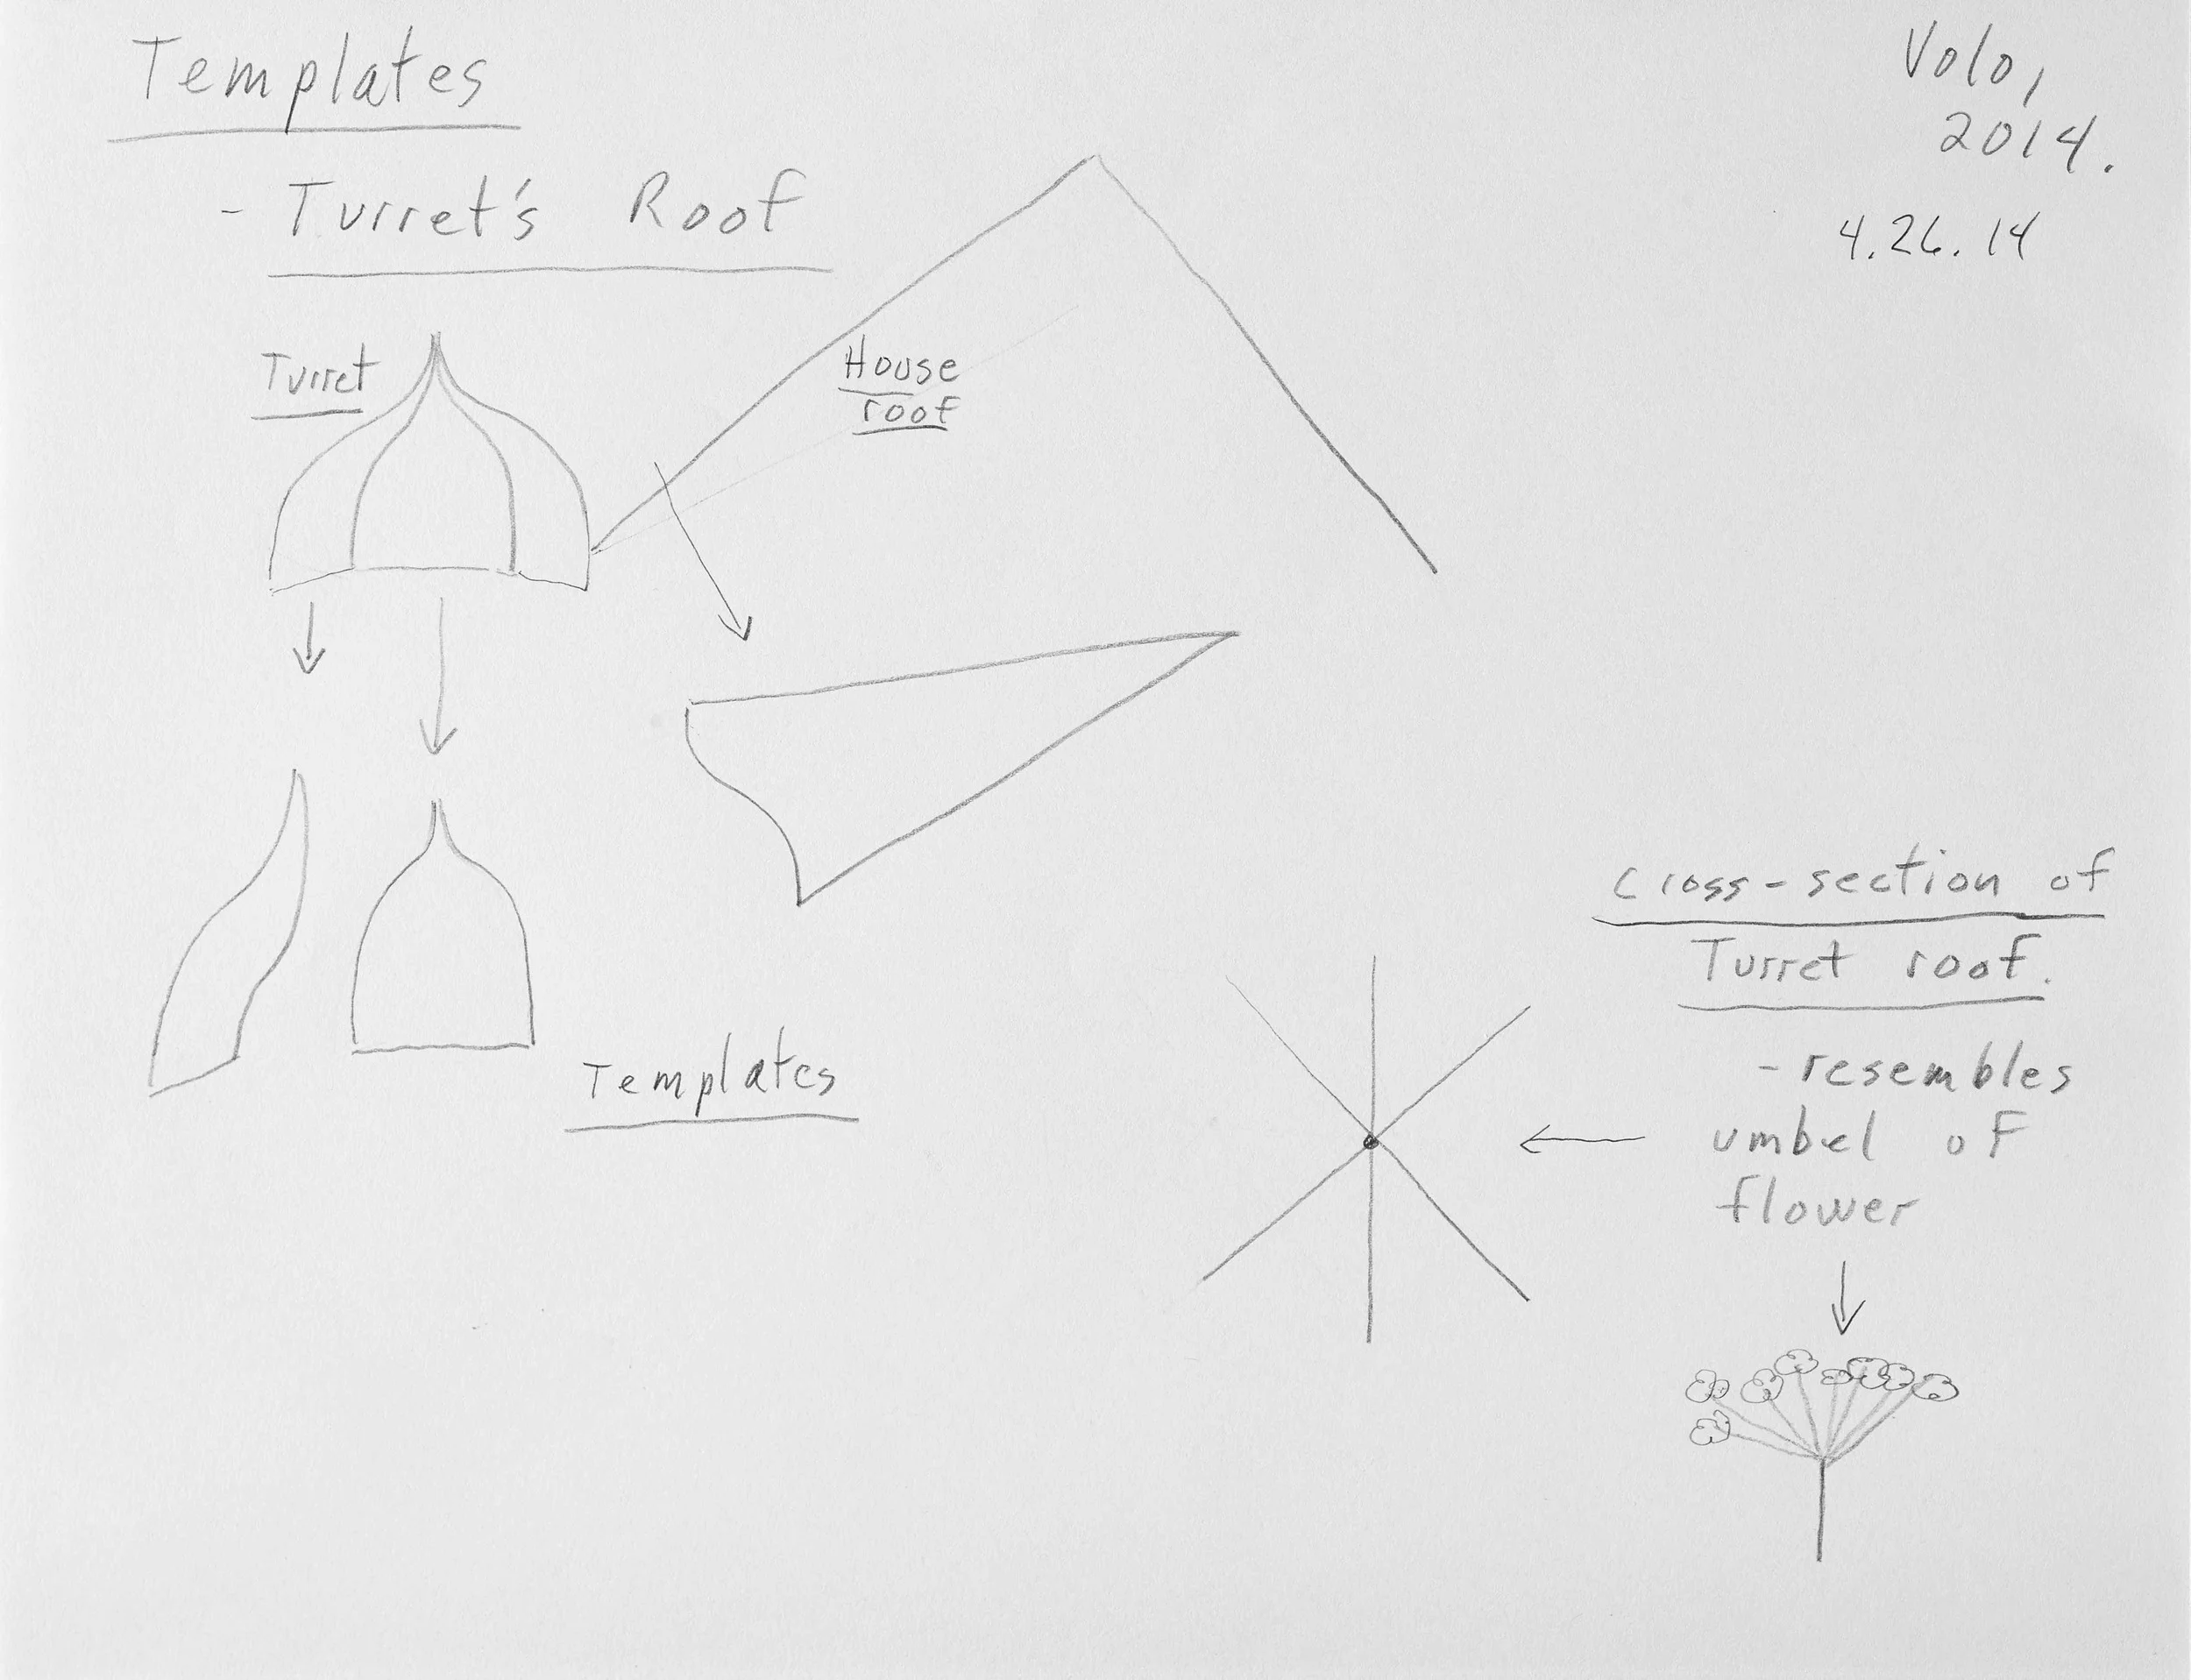 Templates
- Turret's Roof
Volo,
2014.
4.26.14
Turret
House
roof
Templates
Cross-section of
Turret roof.
- resembles
umbel of
flower